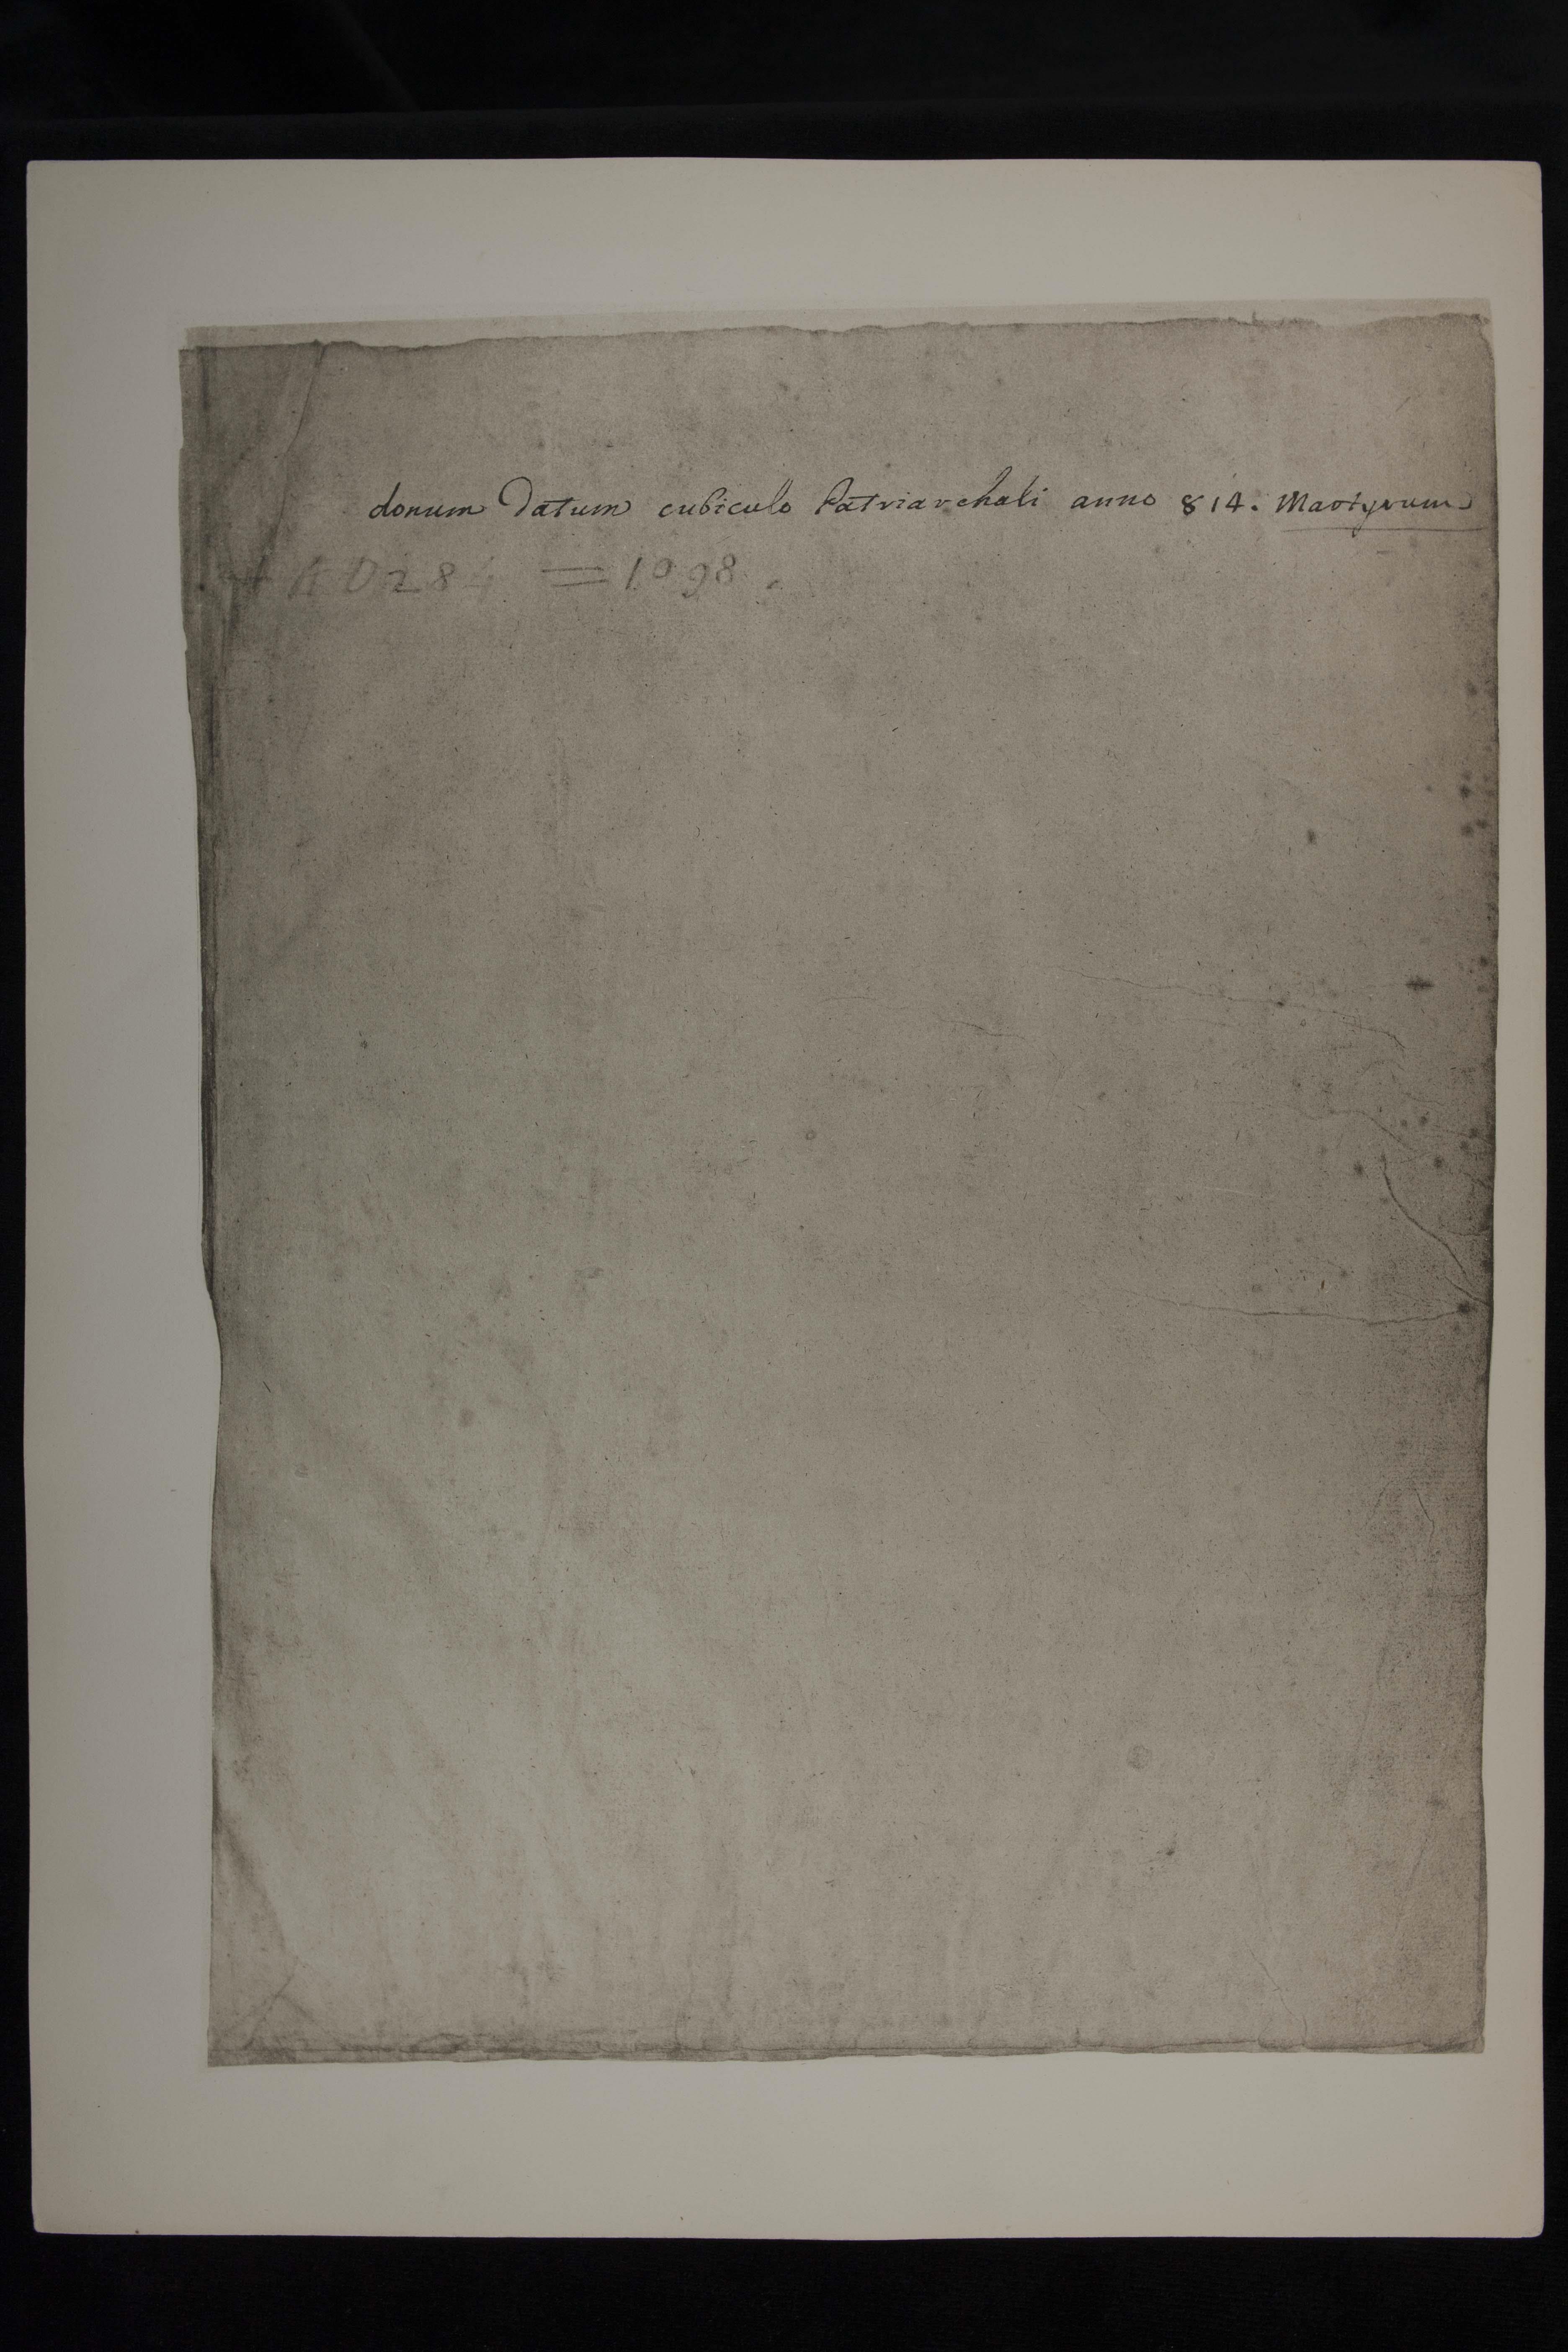 donum Datum cubiculo Patriarchali anno 814. Martyrum
+ AD 284 = 1098.